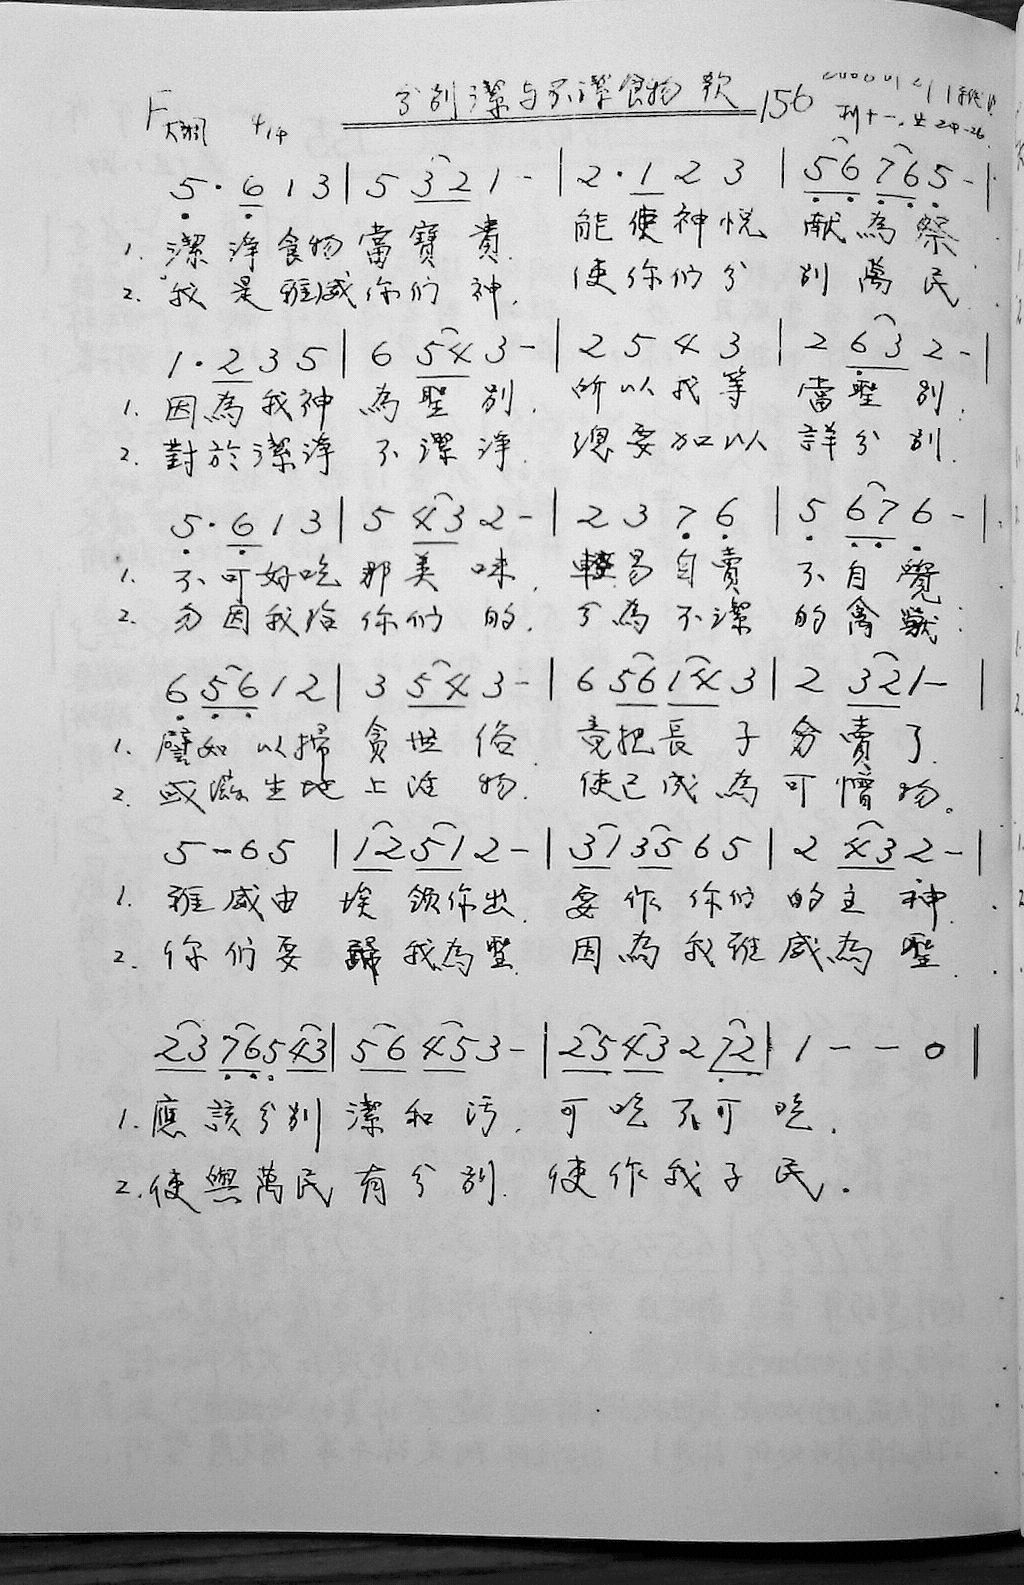 分別潔与不潔食物歌 156
F大調 4/4
5·6 1 3 | 5 3 2 1 - | 2·1 2 3 | 5 6 7 6 5 - |
1. 潔淨食物當寶貴. 能使神悅 献為祭
2. 我是雅威你们神. 使你们分 别萬民
1·2 3 5 | 6 5 4 3 - | 2 5 4 3 | 2 6 3 2 - |
1. 因為我神 為聖别. 所以我等 當聖别.
2. 對於潔淨 不潔淨. 總要加以 詳分别.
5·6 1 3 | 5 4 3 2 - | 2 3 7 6 | 5 6 7 6 - |
1. 不可好吃 那美味. 輕易自賣 不自覺
2. 勿因我给 你们的. 分為不潔 的禽獸
6 5 6 1 2 | 3 5 4 3 - | 6 5 6 1 4 3 | 2 3 2 1 - |
1. 譬如以掃 貪世俗 竟把長子 名賣了.
2. 或滋生地上 物. 使己成為可憎物。
5 - 6 5 | 1 2 5 1 2 - | 3 1 3 5 6 5 | 2 4 3 2 - |
1. 雅威由 埃领你出. 要作你们 的主神.
2. 你们要 歸我為聖. 因為我雅威為聖.
2 3 7 6 5 4 3 | 5 6 4 5 3 - | 2 5 4 3 2 7 2 | 1 - - 0 |
1. 應該分别 潔和污. 可吃不可 吃.
2. 使與萬民有分别. 使作我子民.